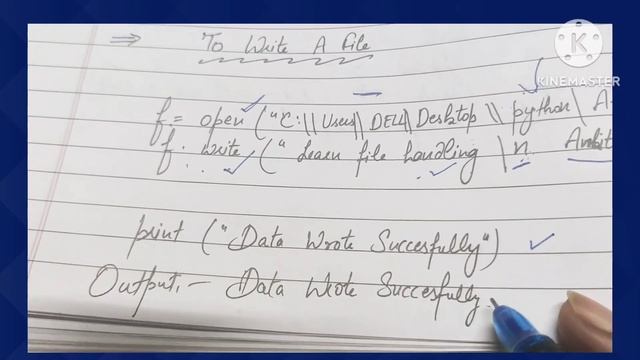 ⇒ To Write A File
K
KINEMASTER
f = open ("C:\\Users\\DELL\Desktop \\ python\ A
f. write ("Learn file handling \n Ambit
print ("Data Wrote Succesfully")
Output:- Data Wrote Succesfully.